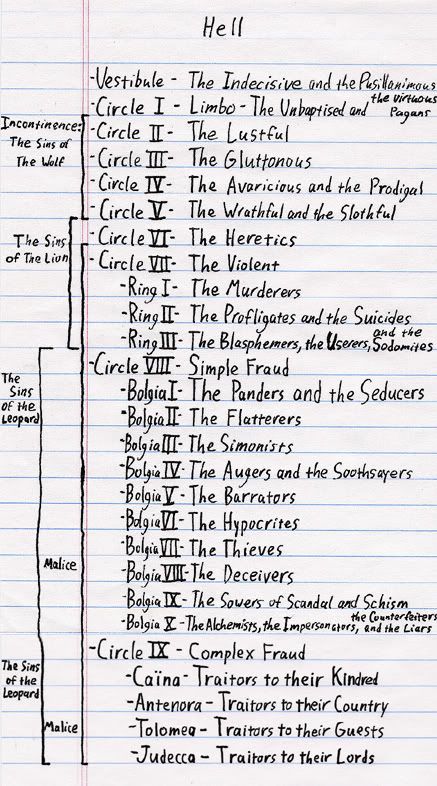 Hell
-Vestibule - The Indecisive and the Pusillanimous
-Circle I - Limbo - The Unbaptised and the virtuous Pagans
Incontinence:
The Sins of
The Wolf
-Circle II - The Lustful
-Circle III - The Gluttonous
-Circle IV - The Avaricious and the Prodigal
-Circle V - The Wrathful and the Slothful
The Sins
of The Lion
-Circle VI - The Heretics
-Circle VII - The Violent
-Ring I - The Murderers
-Ring II - The Profligates and the Suicides
-Ring III - The Blasphemers, the Userers, and the Sodomites
The
Sins
of the
Leopard
-Circle VIII - Simple Fraud
-Bolgia I - The Panders and the Seducers
-Bolgia II - The Flatterers
-Bolgia III - The Simonists
-Bolgia IV - The Augers and the Soothsayers
-Bolgia V - The Barrators
-Bolgia VI - The Hypocrites
-Bolgia VII - The Thieves
Malice
-Bolgia VIII - The Deceivers
-Bolgia IX - The Sowers of Scandal and Schism
-Bolgia X - The Alchemists, the Impersonators, the Counterfeiters, and the Liars
-Circle IX - Complex Fraud
The Sins
of the
Leopard
-Caïna - Traitors to their Kindred
-Antenora - Traitors to their Country
Malice
-Tolomea - Traitors to their Guests
-Judecca - Traitors to their Lords